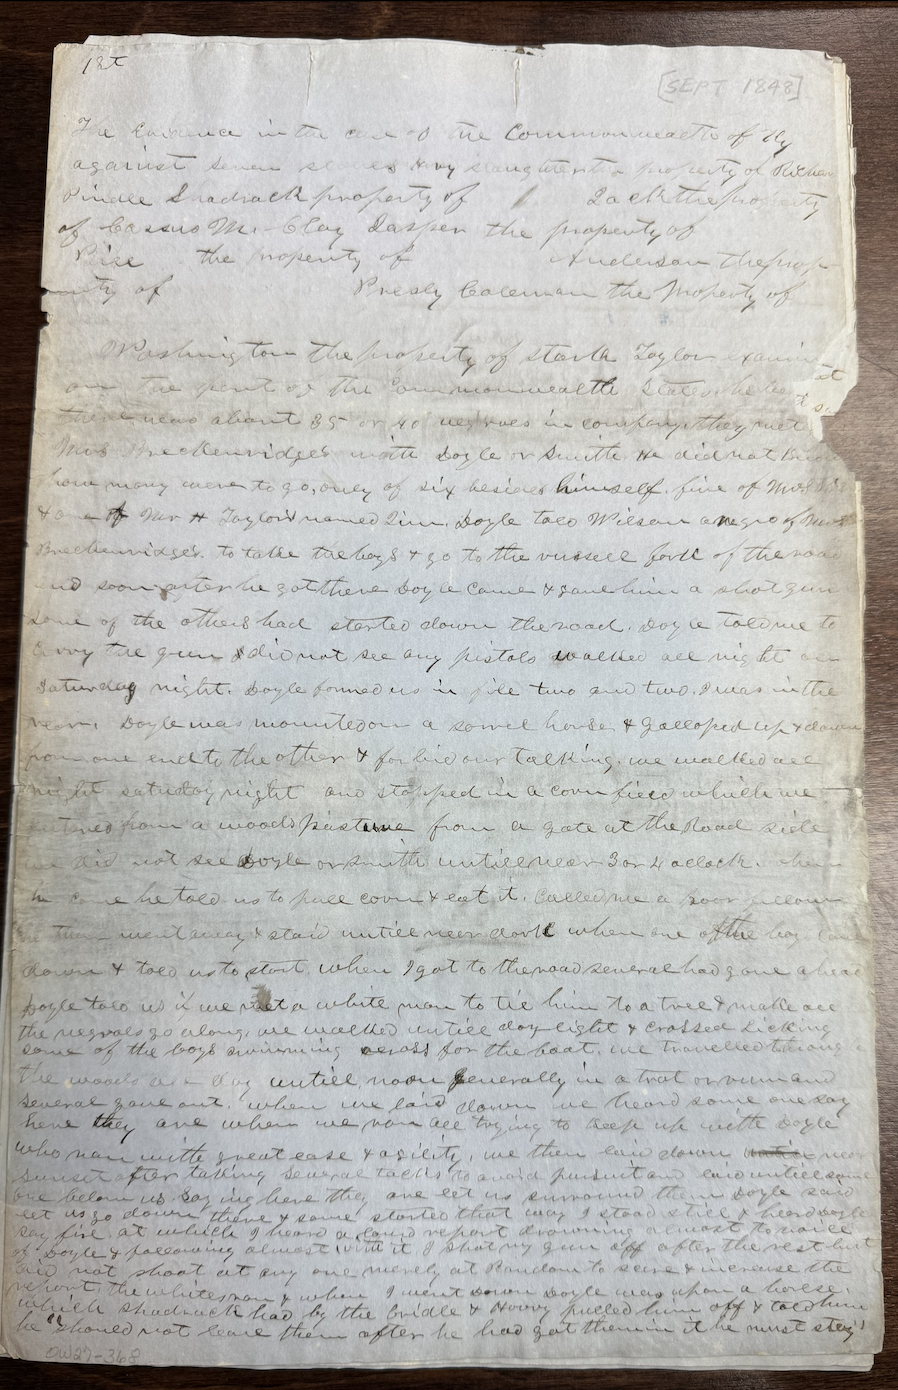 1st
[SEPT 1848]
The Evidence in the case of the Commonwealth of Ky
against seven slaves Harry slaughter the property of Richar
Pindle Shadrack property of Jack the property
of Cassius M. Clay Jasper the property of
the property of Anderson the prop
erty of Presly Coleman the Property of
Washington the property of Stark Taylor examin
on the part of the Commonwealth States, he
there was about 35 or 40 negroes in company. they met at
Mrs Breckenridges with Doyle or Smith. He did not know
how many were to go, only of six besides himself. five of Mrs
& one of Mr H Taylors named Jim. Doyle told Wilson a negro of Mrs
Breckenridges. to take the boys & go to the russell fork of the road
and soon after he got there Doyle came & gave him a shot gun
some of the others had started down the road. Doyle told me to
Carry the gun I did not see any pistols walked all night on
Saturday night. Doyle formed us in file two and two. I was in the
rear. Doyle was mounted on a sorrel horse & galloped up & down
from one end to the other & forbid our talking. we walked all
night saturday night and stopped in a corn field which we
entered from a woods pasture from a gate at the Road side
we did not see Doyle or smith untill near 3 or 4 oclock. when
he came he told us to pull corn & eat it. Called me a poor fellow
he then went away & staid untill near dark when one of the boys came
down & told us to start when I got to the road several had gone ahead
Doyle told us if we met a white man to tie him to a tree & make all
the negroes go along, we walked untill day light & crossed Licking
some of the boys swimming across for the boat. we travelled through
the woods all day untill noon generally in a trot or run and
several gave out. when we laid down we heard some one say
here they are when we ran all trying to keep up with Doyle
who ran with great ease & agility, we then laid down near
sunset after taking several tacks to avoid pursuit and laid untill some
one below us saying here they are let us surround them Doyle said
let us go down there & some started that way I stood still & heard Doyle
say fire at which I heard a loud report drowning almost the voice
of Doyle & following almost with it I shot my gun off after the rest but
did not shoot at any one merely at Random to scare & increase the
report. the whites ran & when I went down Doyle was upon a horse.
which shadrack had by the bridle & Harry pulled him off & told him
he "should not leave them after he had got them in it he must stay"
OW27-368